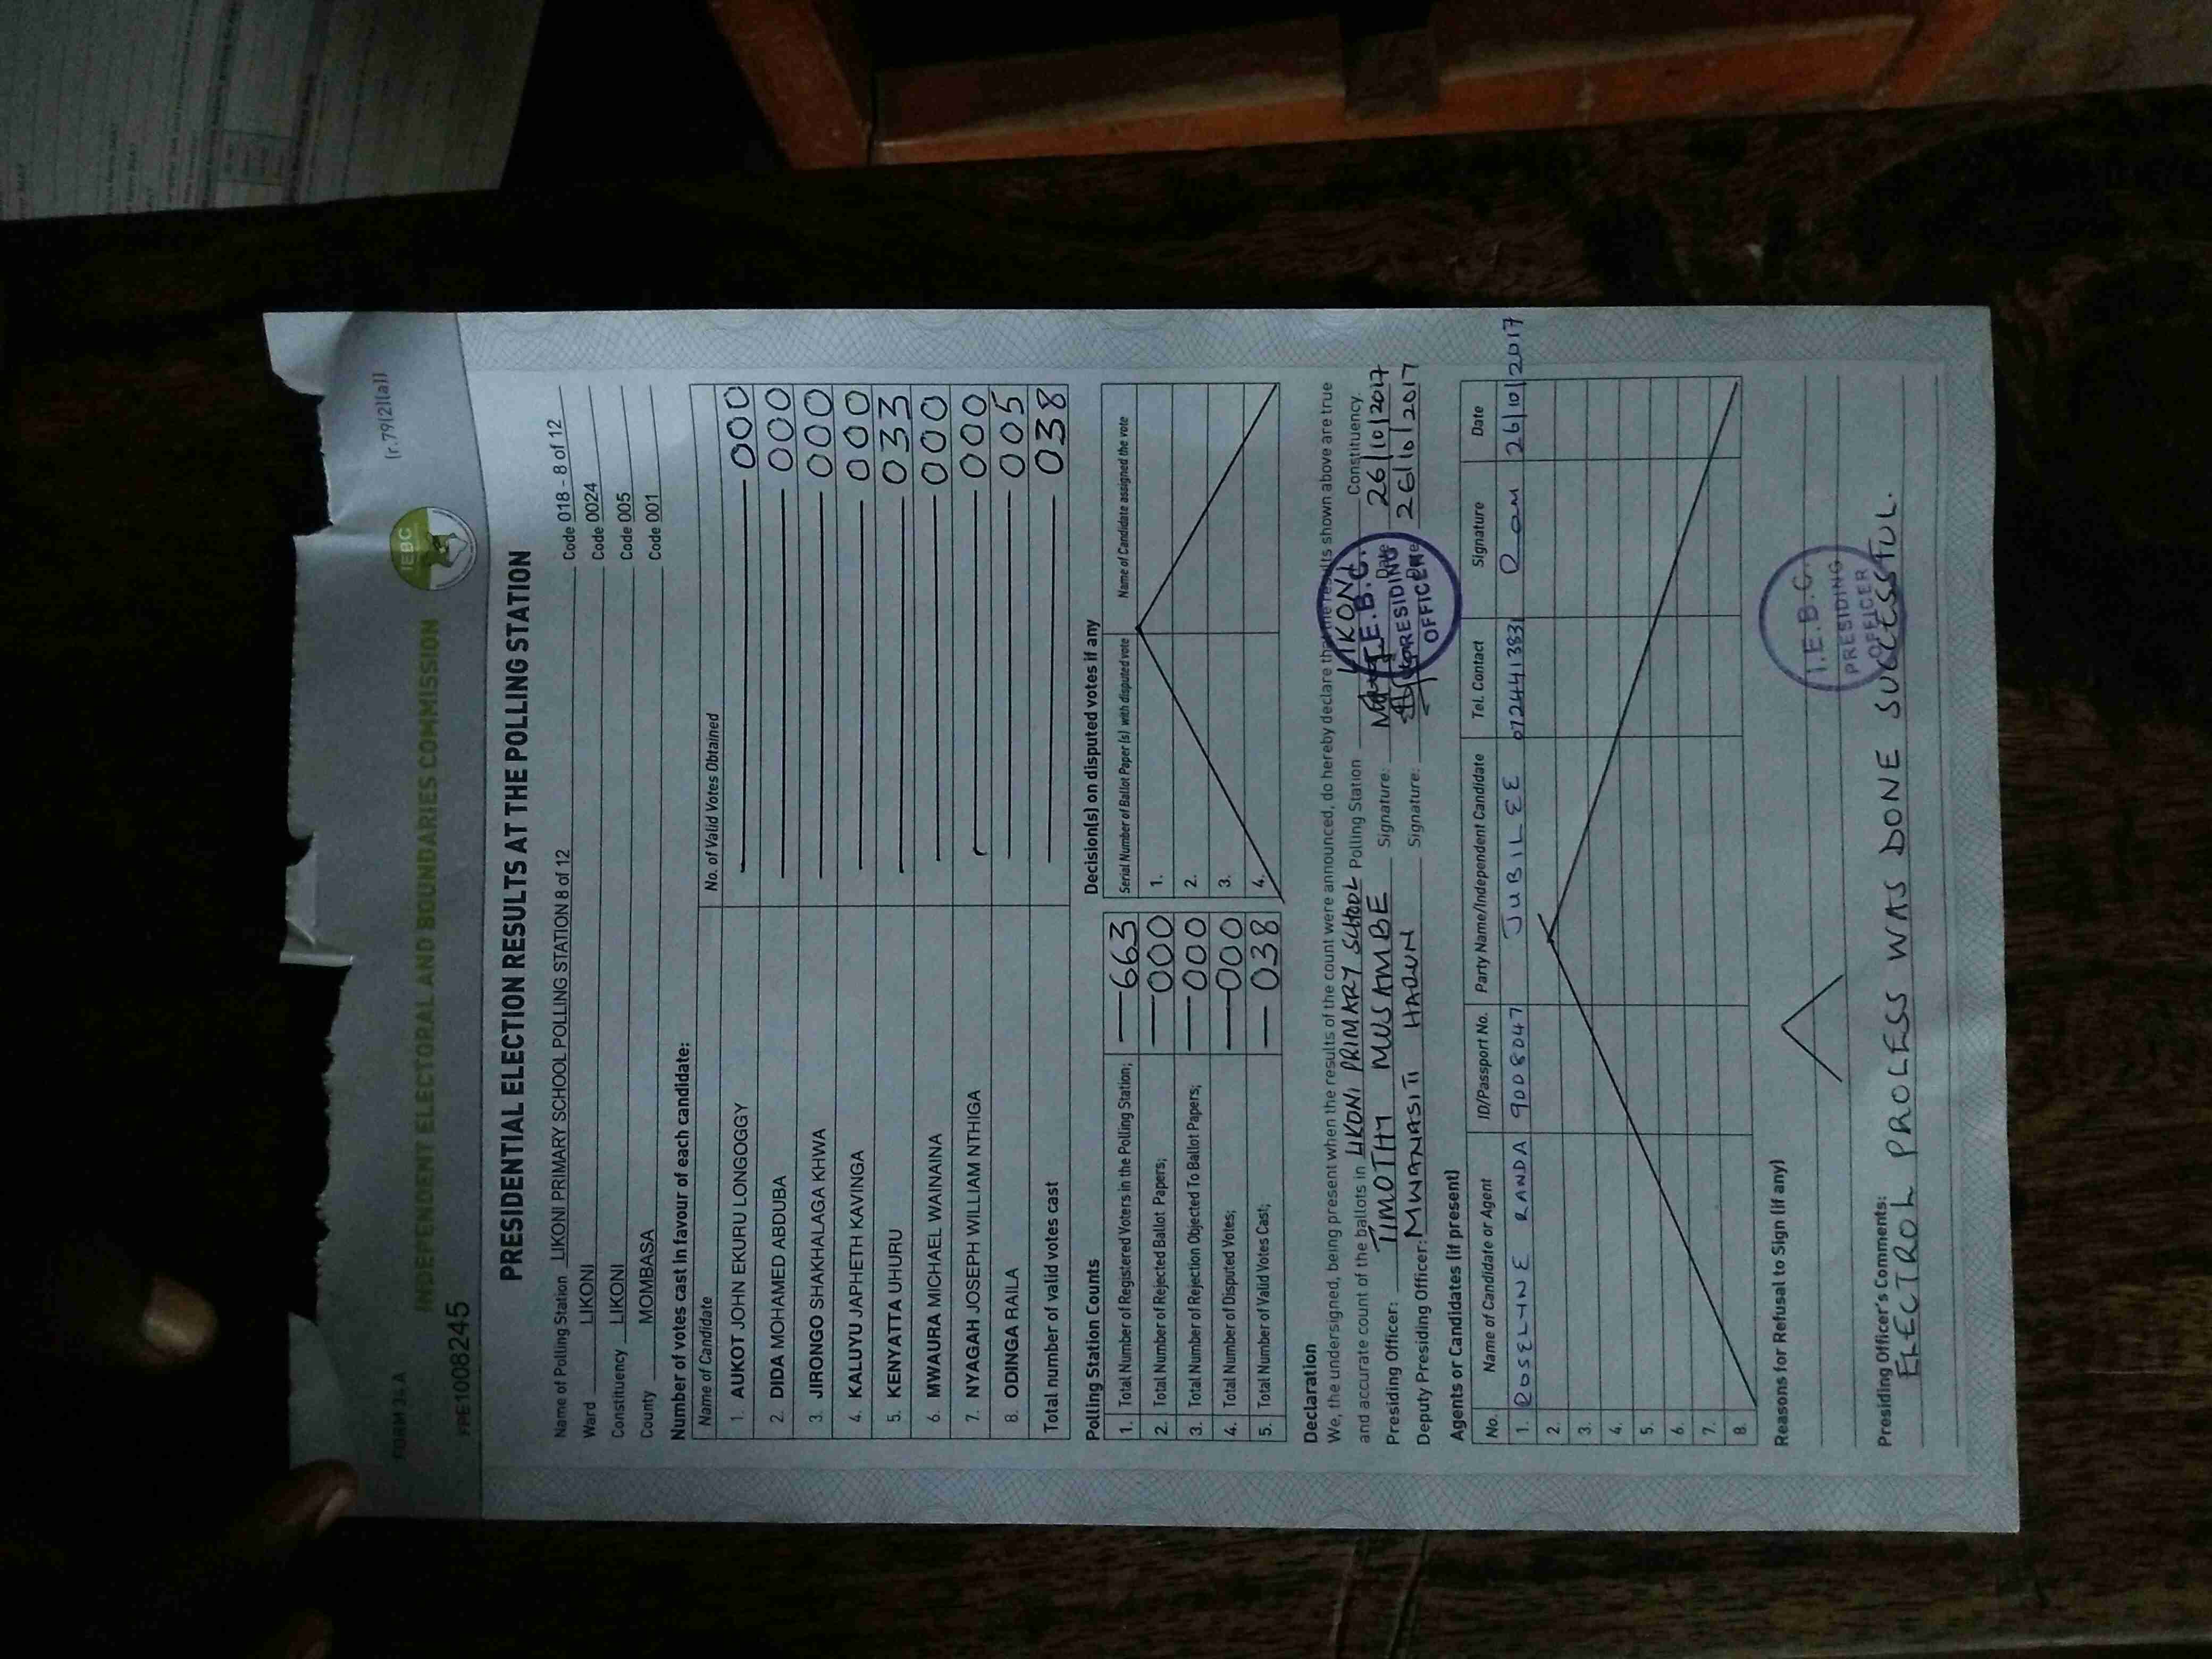 FORM 34 A
(r.79(2)(a))
INDEPENDENT ELECTORAL AND BOUNDARIES COMMISSION
IEBC
FPE1008245
PRESIDENTIAL ELECTION RESULTS AT THE POLLING STATION
Name of Polling Station LIKONI PRIMARY SCHOOL POLLING STATION 8 of 12 Code 018 - 8 of 12
Ward LIKONI Code 0024
Constituency LIKONI Code 005
County MOMBASA Code 001
Number of votes cast in favour of each candidate:
Name of Candidate No. of Valid Votes Obtained
1. AUKOT JOHN EKURU LONGOGGY 000
2. DIDA MOHAMED ABDUBA 000
3. JIRONGO SHAKHALAGA KHWA 000
4. KALUYU JAPHETH KAVINGA 000
5. KENYATTA UHURU 033
6. MWAURA MICHAEL WAINAINA 000
7. NYAGAH JOSEPH WILLIAM NTHIGA 000
8. ODINGA RAILA 005
Total number of valid votes cast 038
Polling Station Counts
1. Total Number of Registered Voters in the Polling Station; 663
2. Total Number of Rejected Ballot Papers; 000
3. Total Number of Rejection Objected To Ballot Papers; 000
4. Total Number of Disputed Votes; 000
5. Total Number of Valid Votes Cast; 038
Decision(s) on disputed votes if any
Serial Number of Ballot Paper (s) with disputed vote Name of Candidate assigned the vote
1.
2.
3.
4.
Declaration
We, the undersigned, being present when the results of the count were announced, do hereby declare that the results shown above are true
and accurate count of the ballots in LIKONI PRIMARY SCHOOL Polling Station LIKONI Constituency.
Presiding Officer: TIMOTHY MUSAMBE Signature: Date 26/10/2017
Deputy Presiding Officer: MWANASITI HARUN Signature: Date 26/10/2017
I.E.B.C.
PRESIDING
OFFICER
Agents or Candidates (if present)
No. Name of Candidate or Agent ID/Passport No. Party Name/Independent Candidate Tel. Contact Signature Date
1. ROSELYNE RANDA 9008047 JUBILEE 0724413831 26/10/2017
2.
3.
4.
5.
6.
7.
8.
Reasons for Refusal to Sign (if any)
I.E.B.C.
PRESIDING
OFFICER
Presiding Officer's Comments:
ELECTROL PROCESS WAS DONE SUCCESSFUL.